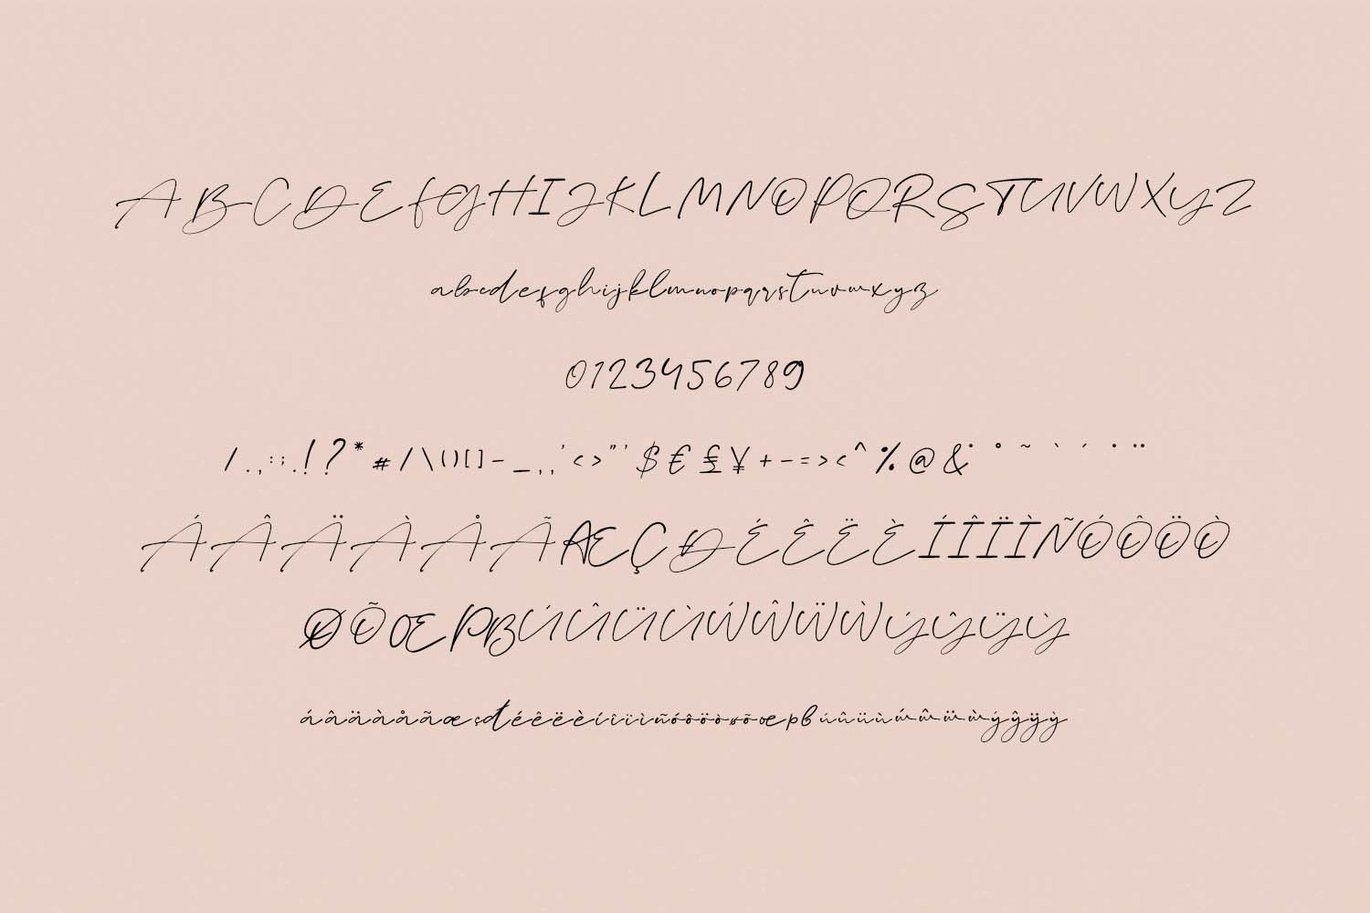 ABCDEFGHIJKLMNOPQRSTUVWXYZ
abcdefghijklmnopqrstuvwxyz
0123456789
/.,:;.!?*#/\()[]-_,,'<>"'$€£¥+-=><^%@&˙°˜`´˙¨
ÁÂÄÀÅÃÆÇĐÉÊËÈÍÎÏÌÑÓÔÖÒ
ØÕŒÞẞÚÛÜÙẂŴẄẀÝŶŸỲ
áâäàåãæçđéêëèíîïìñóôöòøõœþßúûüùẃŵẅẁýŷÿỳ